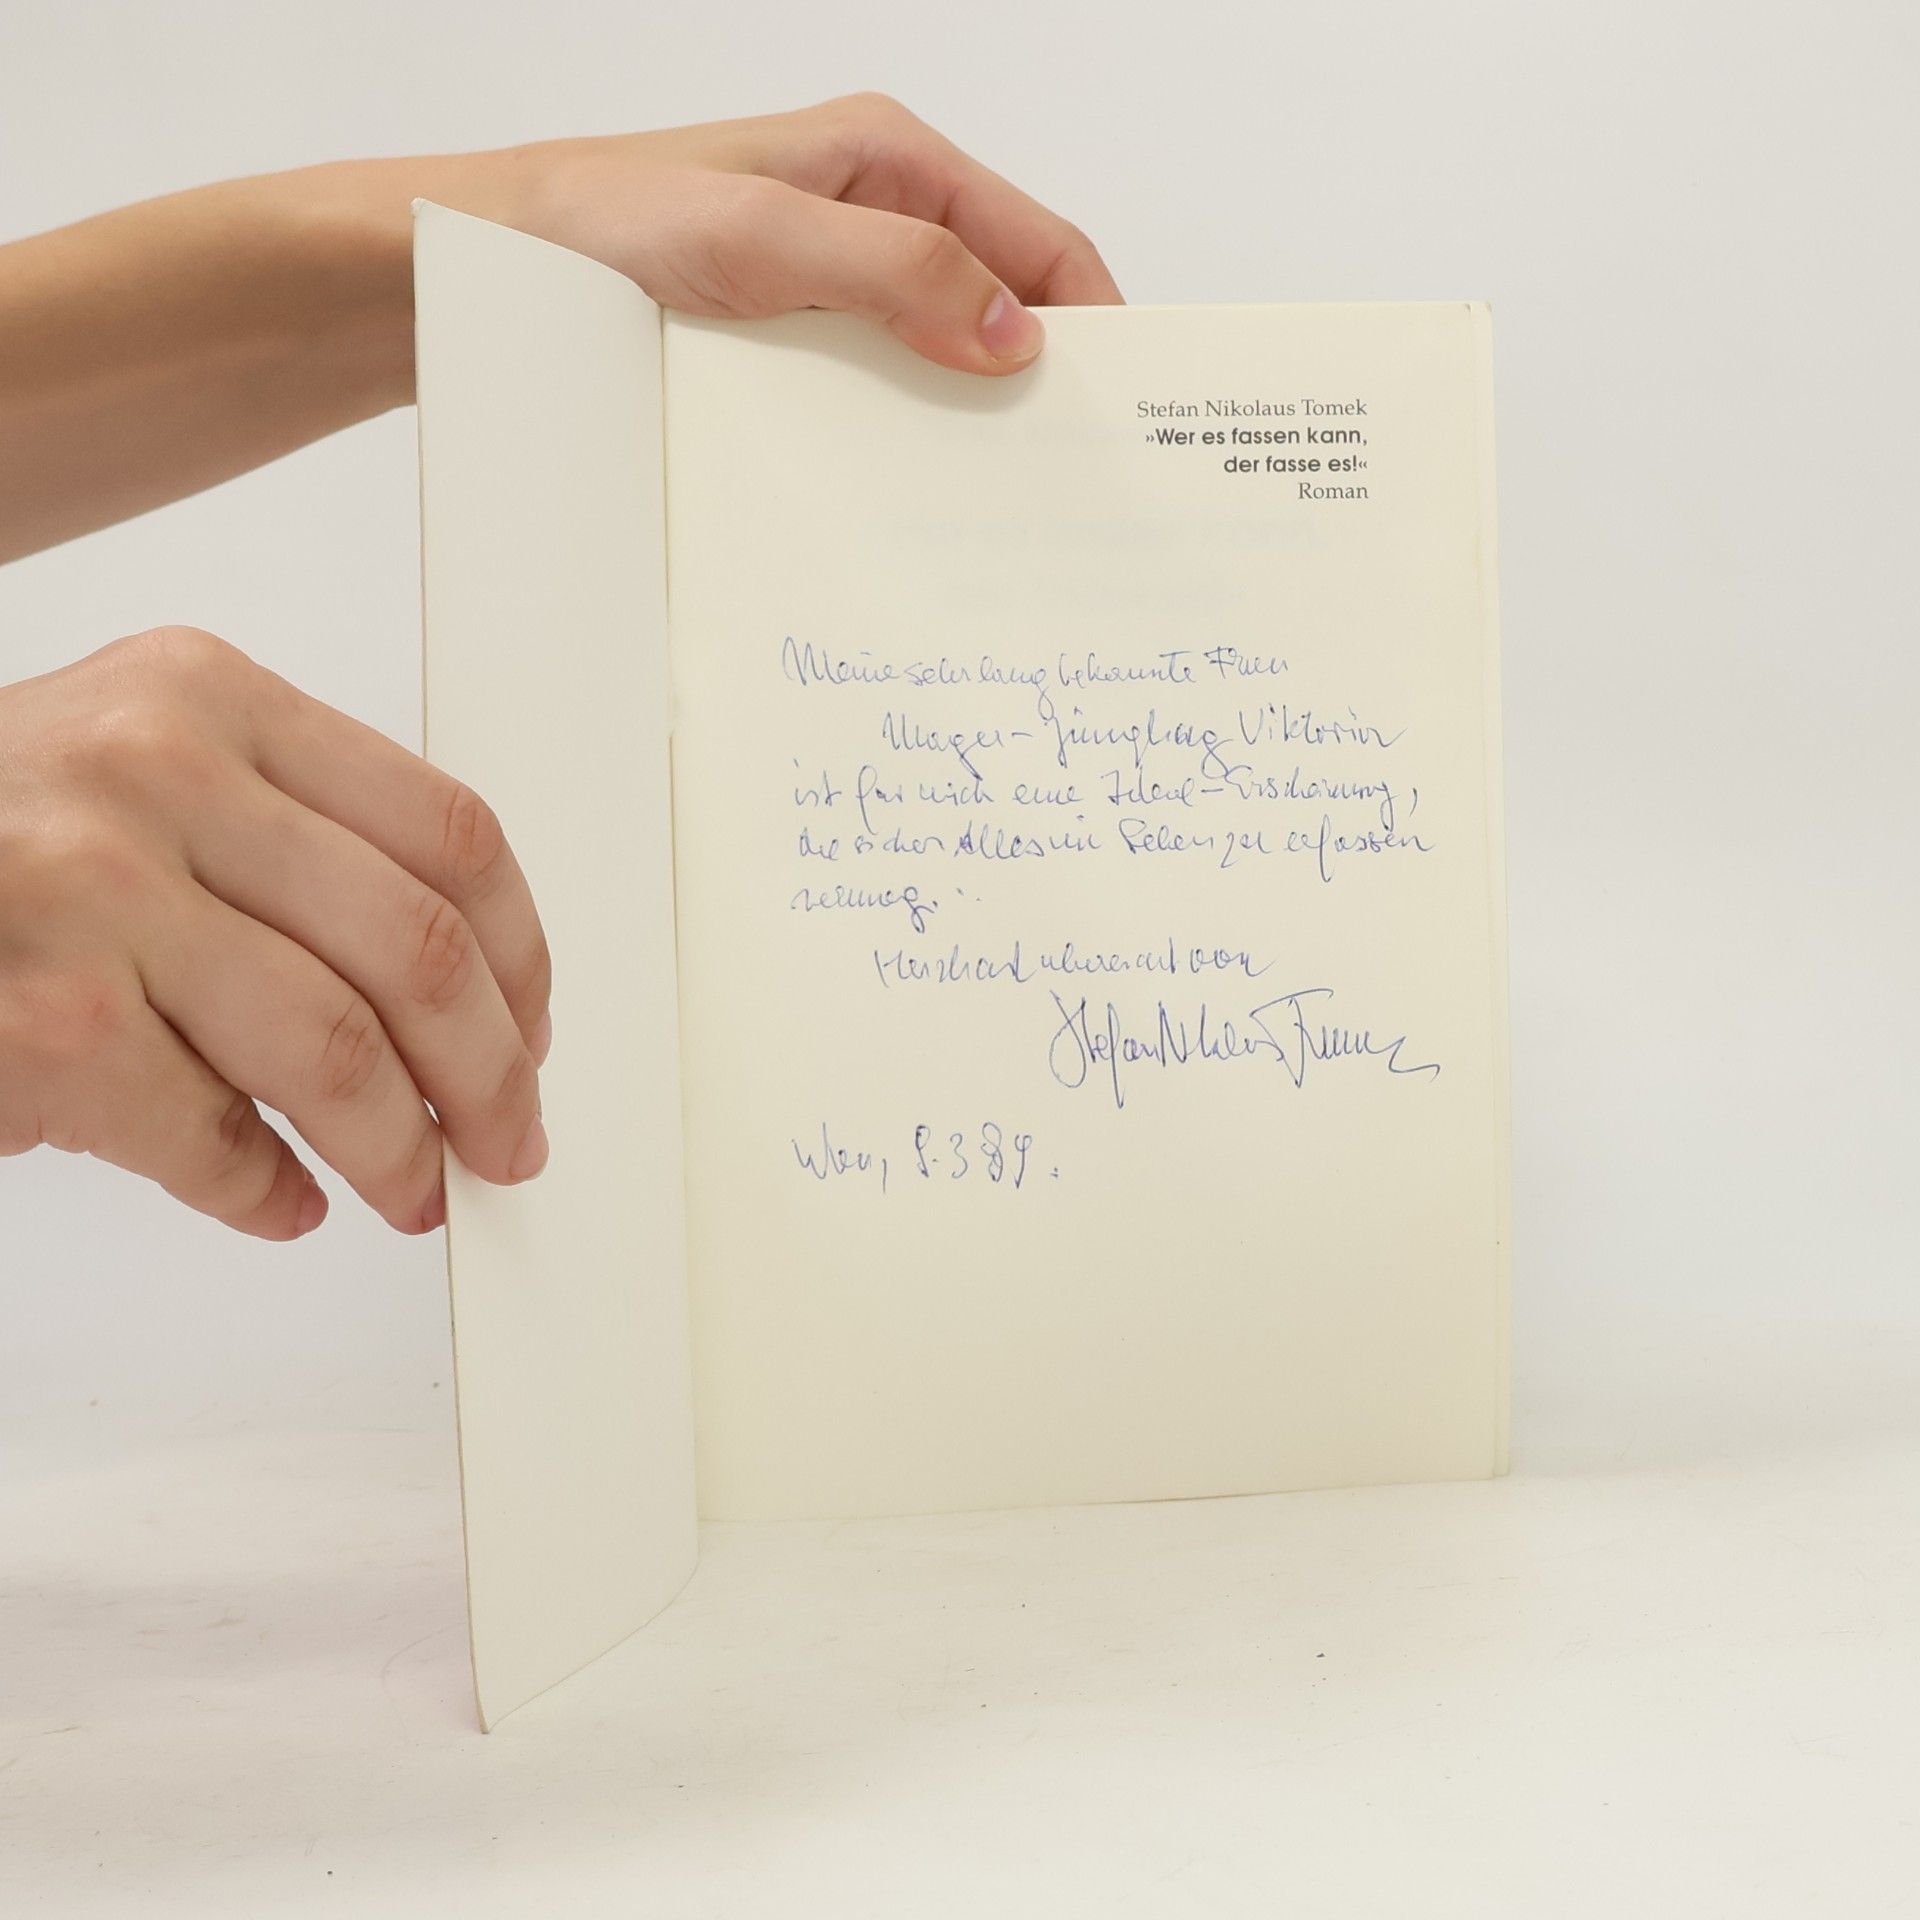 Stefan Nikolaus Tomek
»Wer es fassen kann,
der fasse es!«
Roman
Meine sehr lang bekannte Frau
Viktoria
ist für mich eine Ideal-Erscheinung,
die sicher Alles im Leben zu erfassen
vermag.
Herzhaft überreicht von
Stefan Nikolaus Tomek
Wien, 8.3.89.